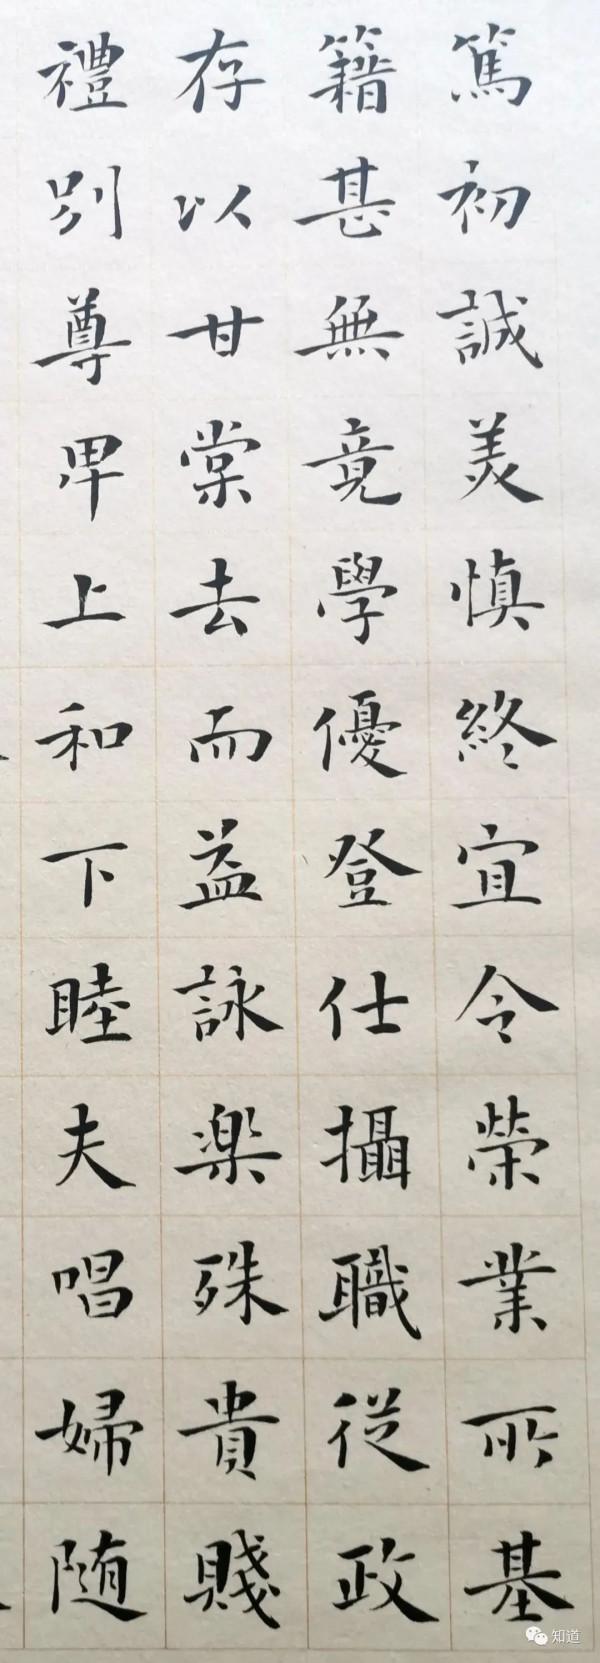 篤初誠美慎終宜令榮業所基
籍甚無竟學優登仕攝職從政
存以甘棠去而益詠楽殊貴賤
禮別尊卑上和下睦夫唱婦随
知道